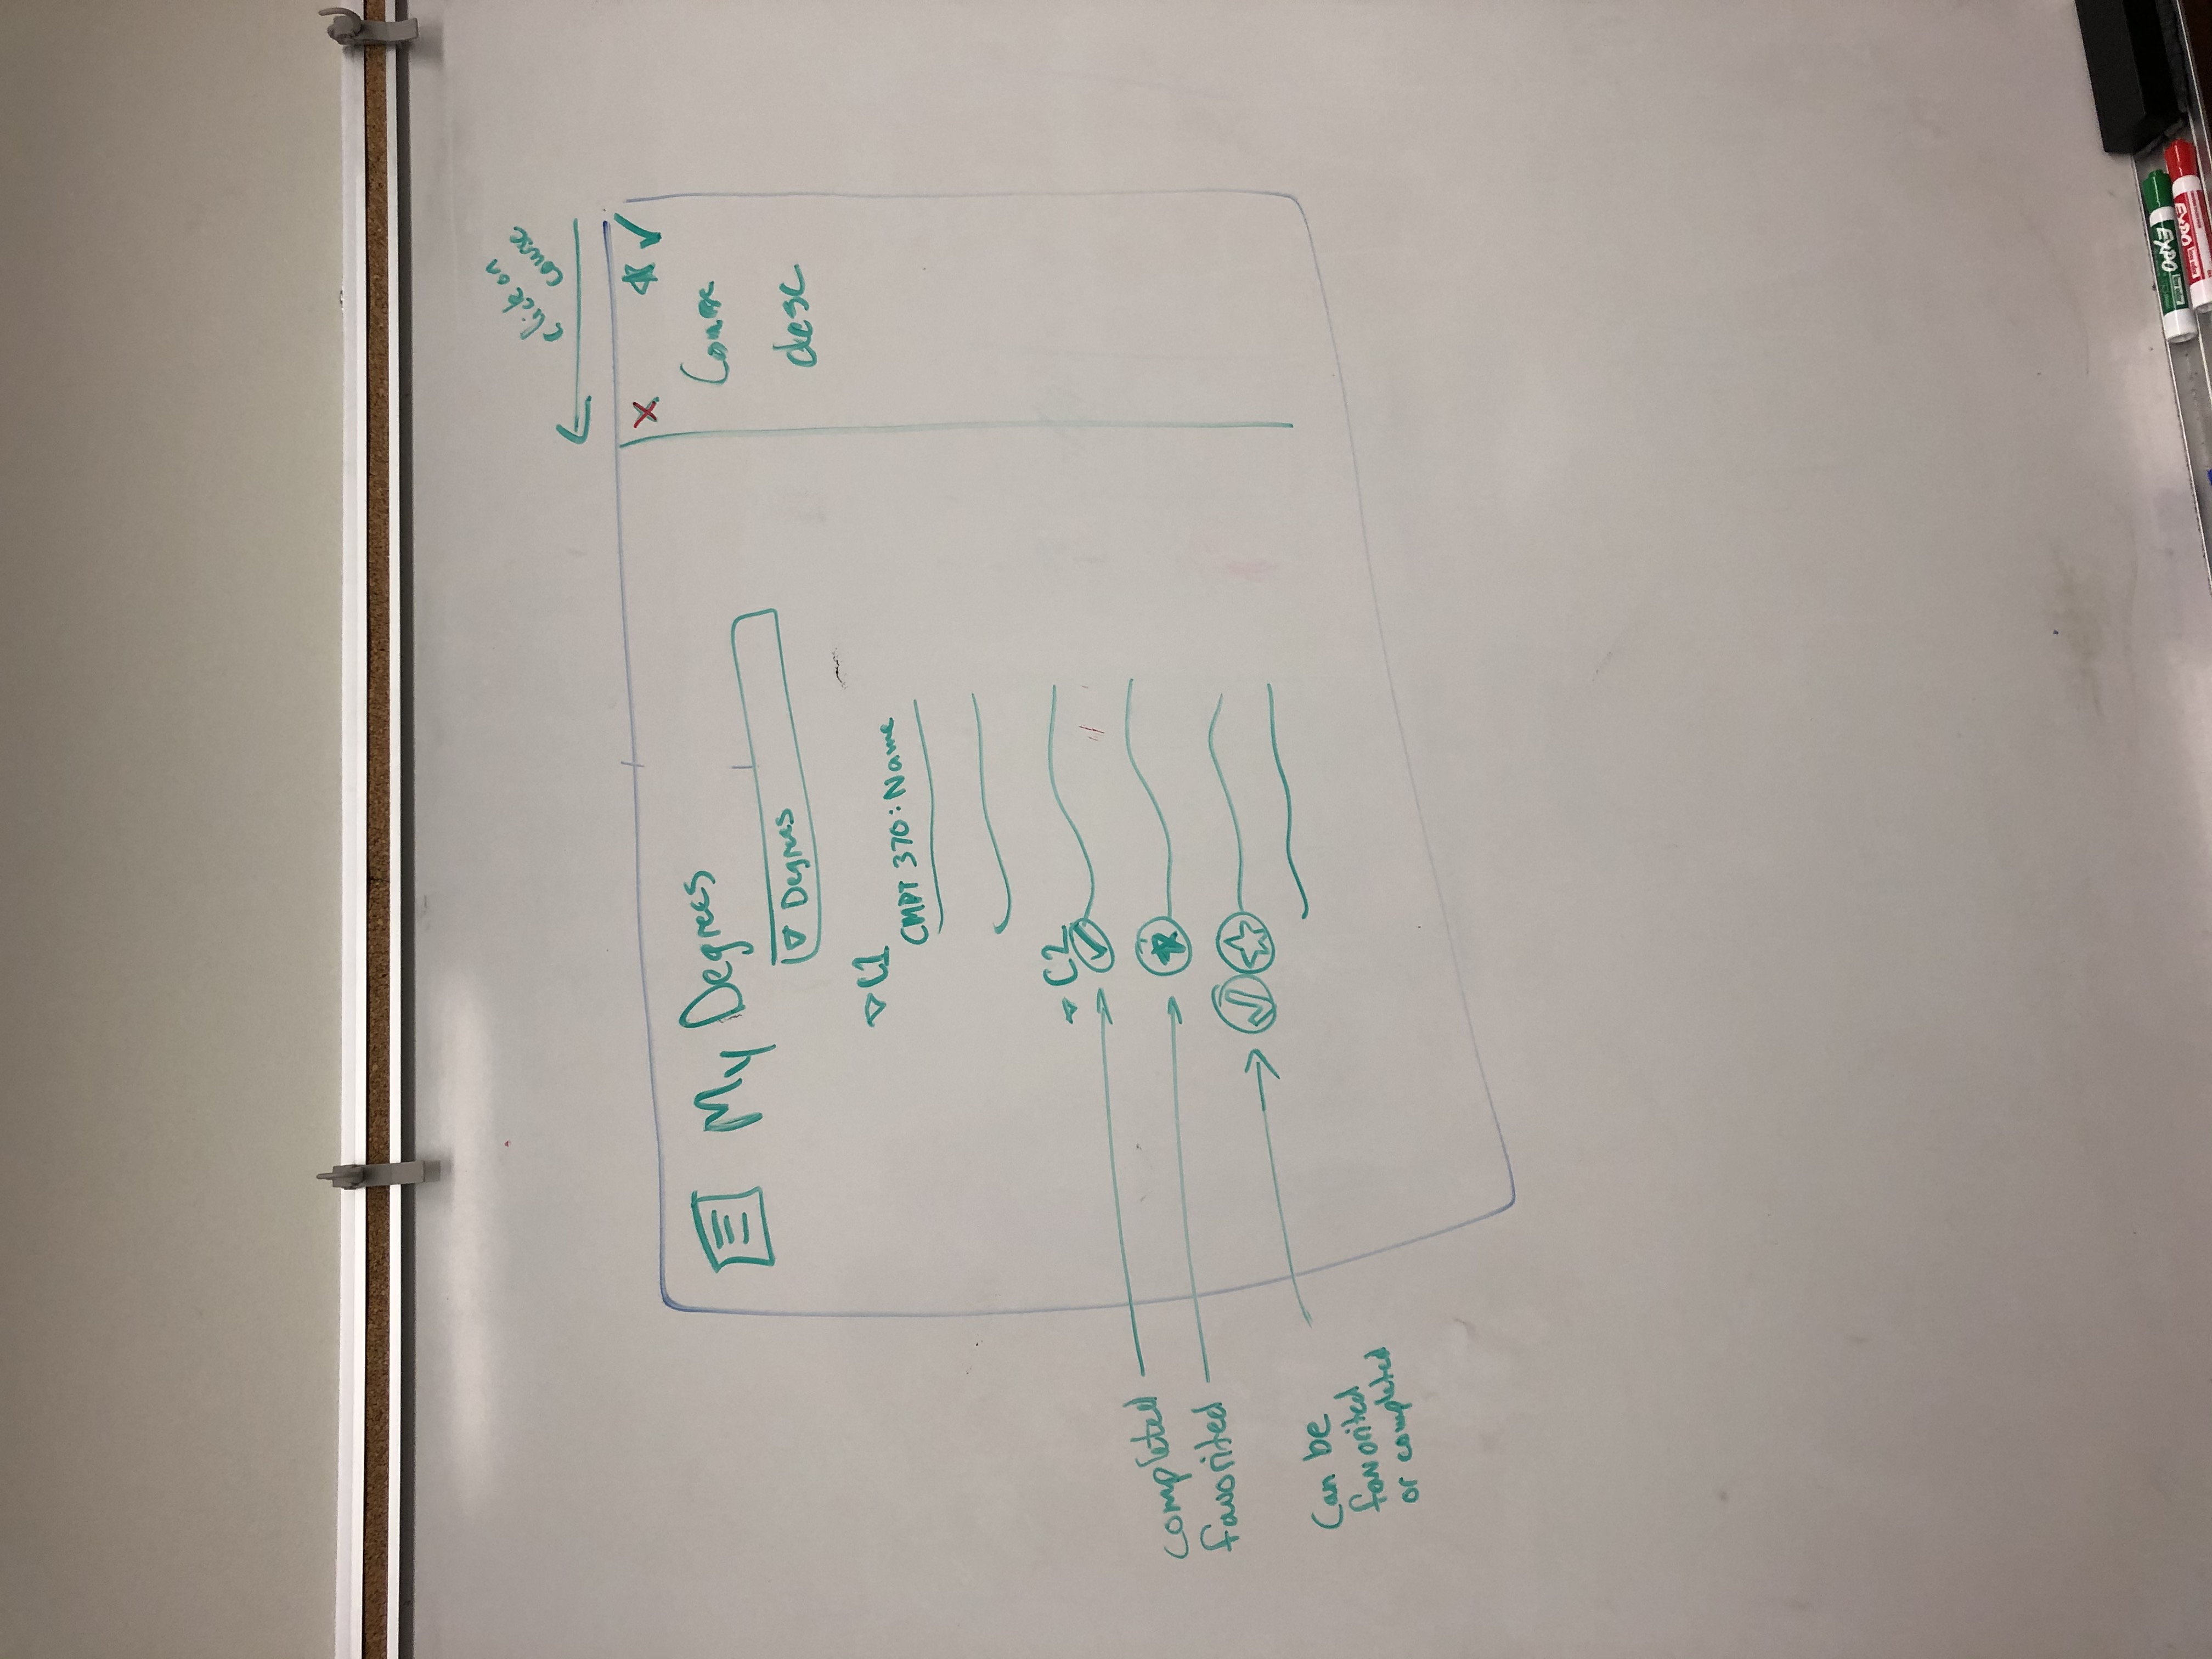 click on
course
My Degrees
Degrees
C1
CMPT 370: Name
C2
Course
desc
completed
favorited
Can be
favorited
or completed
EXPO
EXPO